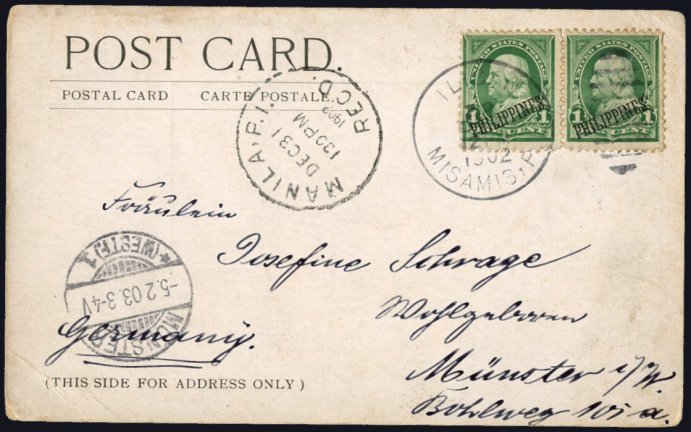 POST CARD.
POSTAL CARD CARTE POSTALE.
MANILA, P.I.
DEC 31
130 PM
1902
REC'D.
IL
1902
MISAMIS, P.
UNITED STATES POSTAGE
PHILIPPINES
1 CENT 1
UNITED STATES POSTAGE
PHILIPPINES
1 CENT 1
Fräulein
Josefine Schrage
Wohlgeboren
Münster i/W.
Bohlweg 101 a.
Germany.
* (WESTF.) 1
-5.2.03.3-4V
MÜNSTER
(THIS SIDE FOR ADDRESS ONLY)